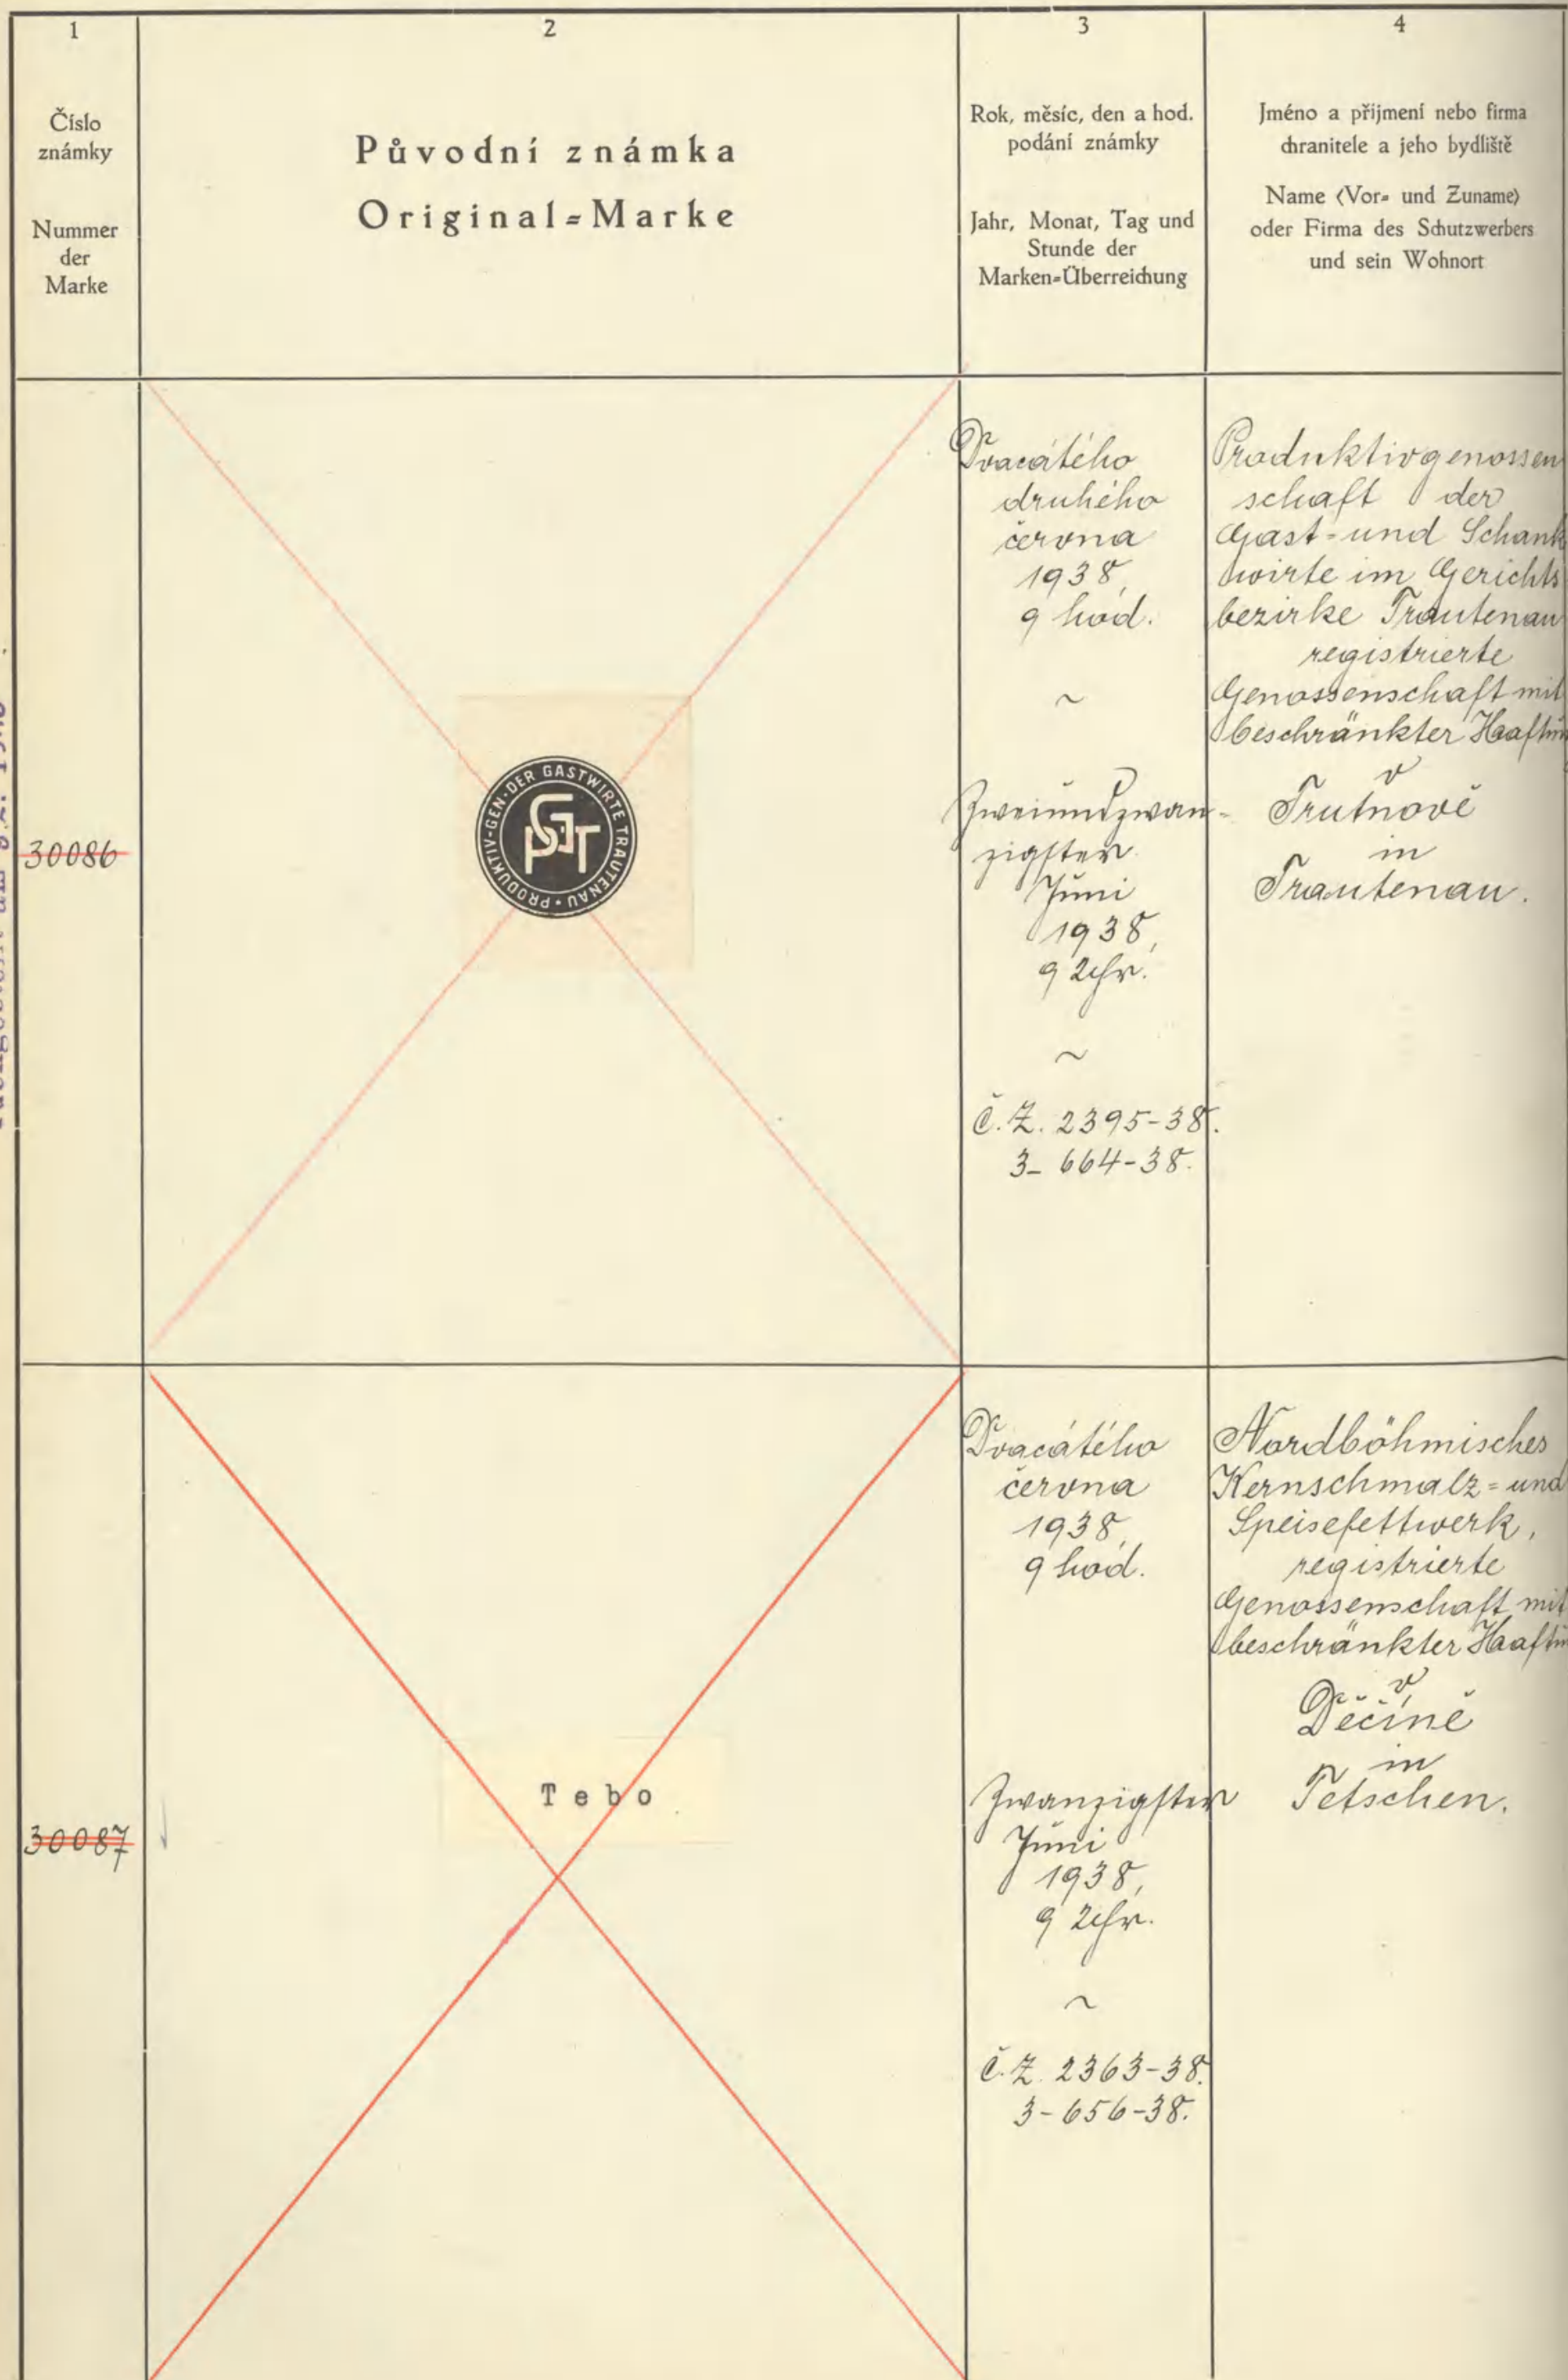 1
2
3
4
Číslo
známky
Nummer
der
Marke
Původní známka
Original=Marke
Rok, měsíc, den a hod.
podání známky
Jahr, Monat, Tag und
Stunde der
Marken=Überreichung
Jméno a přijmení nebo firma
chranitele a jeho bydliště
Name (Vor= und Zuname)
oder Firma des Schutzwerbers
und sein Wohnort
30086
PRODUKTIV-GEN·DER GASTWIRTE TRAUTENAU·
PGT
Dvacátého
druhého
června
1938,
9 hod.
~
Zweiundzwan-
zigster
Juni
1938,
9 Uhr.
~
Č.Z. 2395-38.
3- 664-38.
Produktivgenossen
schaft der
Gast= und Schank
wirte im Gerichts
bezirke Trautenau
registrierte
Genossenschaft mit
beschränkter
v
Trutnově
in
Trautenau.
30087
Tebo
Dvacátého
června
1938,
9 hod.
Zwanzigster
Juni
1938,
9 Uhr.
~
Č.Z. 2363-38.
3-656-38.
Nordböhmisches
Kernschmalz= und
Speisefettwerk,
registrierte
Genossenschaft mit
beschränkter
v
Děčíně
in
Tetschen.